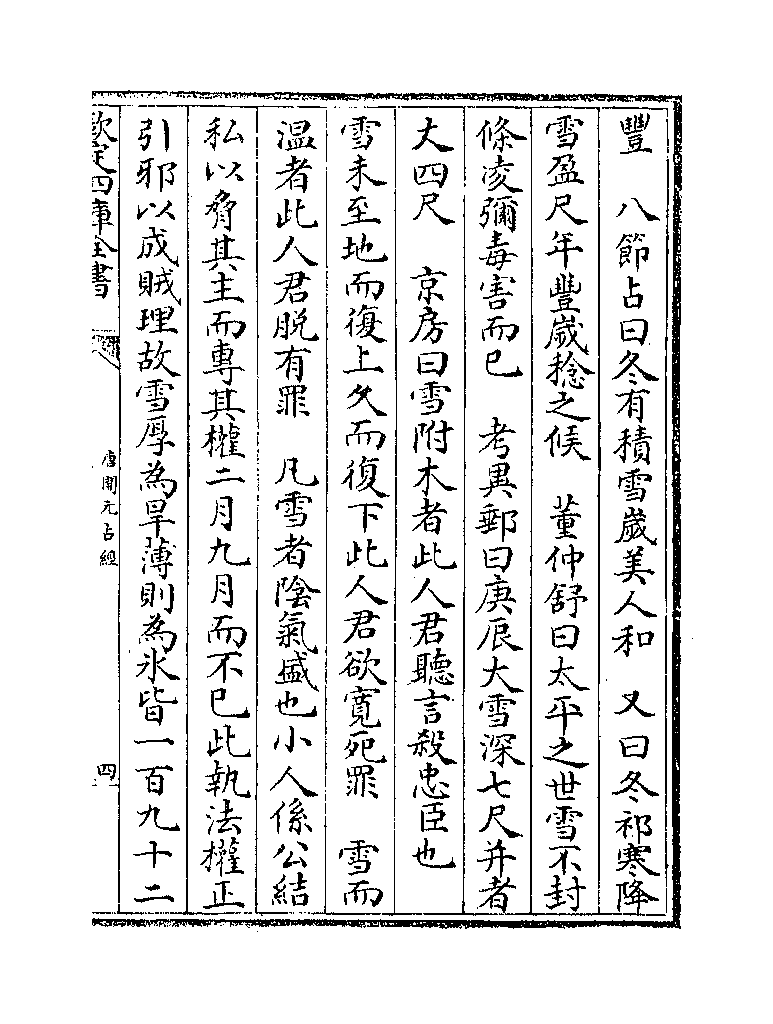 豐　八節占曰冬有積雪歲美人和　又曰冬祁寒降
雪盈尺年豐歲稔之候　董仲舒曰太平之世雪不封
條凌彌毒害而已　考異郵曰庚辰大雪深七尺并者
丈四尺　京房曰雪附木者此人君聽言殺忠臣也
雪未至地而復上久而復下此人君欲寛死罪　雪而
温者此人君脱有罪　凡雪者陰氣盛也小人係公結
私以脅其主而專其權二月九月而不已此執法權正
引邪以成賊理故雪厚為旱薄則為氷皆一百九十二
欽定四庫全書
唐開元占經
四